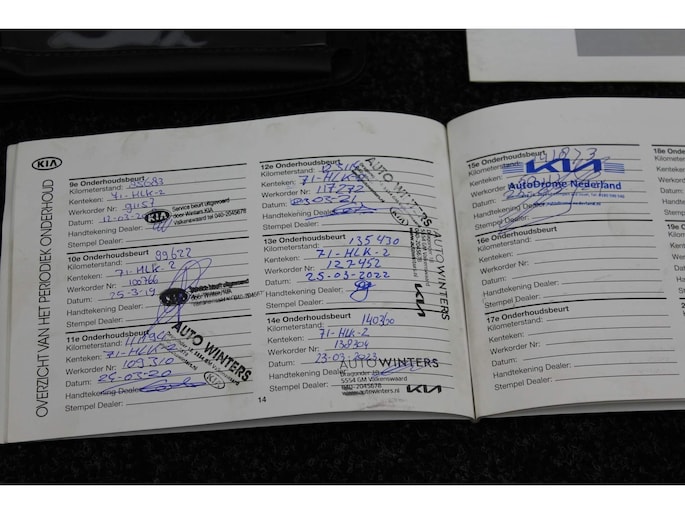 KIA
OVERZICHT VAN HET PERIODIEK ONDERHOUD
9e Onderhoudsbeurt
Kilometerstand: 95683
Kenteken: 71-HLK-2
Werkorder Nr: 91157
Datum: 12-03-
Handtekening Dealer:
Stempel Dealer:
KIA
Service beurt uitgevoerd
door Winters KIA
Valkenswaard tel 040-2045678
10e Onderhoudsbeurt
Kilometerstand: 99622
Kenteken: 71-HLK-2
Werkorder Nr: 100766
Datum: 25-3-19
Handtekening Dealer:
Stempel Dealer:
KIA
Service beurt uitgevoerd
11e Onderhoudsbeurt
Kilometerstand:
Kenteken: 71-HLK-2
Werkorder Nr: 109310
Datum: 25-03-20
Handtekening Dealer:
Stempel Dealer:
AUTO WINTERS
KIA
12e Onderhoudsbeurt
Kilometerstand:
Kenteken: 71-HLK-2
Werkorder Nr: 117272
Datum: 03-03-21
Handtekening Dealer:
Stempel Dealer:
AUTO WINTERS
KIA
13e Onderhoudsbeurt
Kilometerstand: 135430
Kenteken: 71-HLK-2
Werkorder Nr: 127452
Datum: 25-03-2022
Handtekening Dealer:
Stempel Dealer:
AUTO WINTERS
KIA
14e Onderhoudsbeurt
Kilometerstand: 140300
Kenteken: 71-HLK-2
Werkorder Nr: 138304
Datum: 23-03-2023
Handtekening Dealer:
Stempel Dealer:
AUTOWINTERS
5554 GM Valkenswaard
040-2045678
www.autowinters.nl
KIA
14
15e Onderhoudsbeurt
Kilometerstand:
Kenteken:
Werkorder Nr:
Datum:
Handtekening Dealer:
Stempel Dealer:
KIA
AutoDrome Nederland
16e Onderhoudsbeurt
Kilometerstand:
Kenteken:
Werkorder Nr:
Datum:
Handtekening Dealer:
Stempel Dealer:
17e Onderhoudsbeurt
Kilometerstand:
Kenteken:
Werkorder Nr:
Datum:
Handtekening Dealer:
Stempel Dealer: